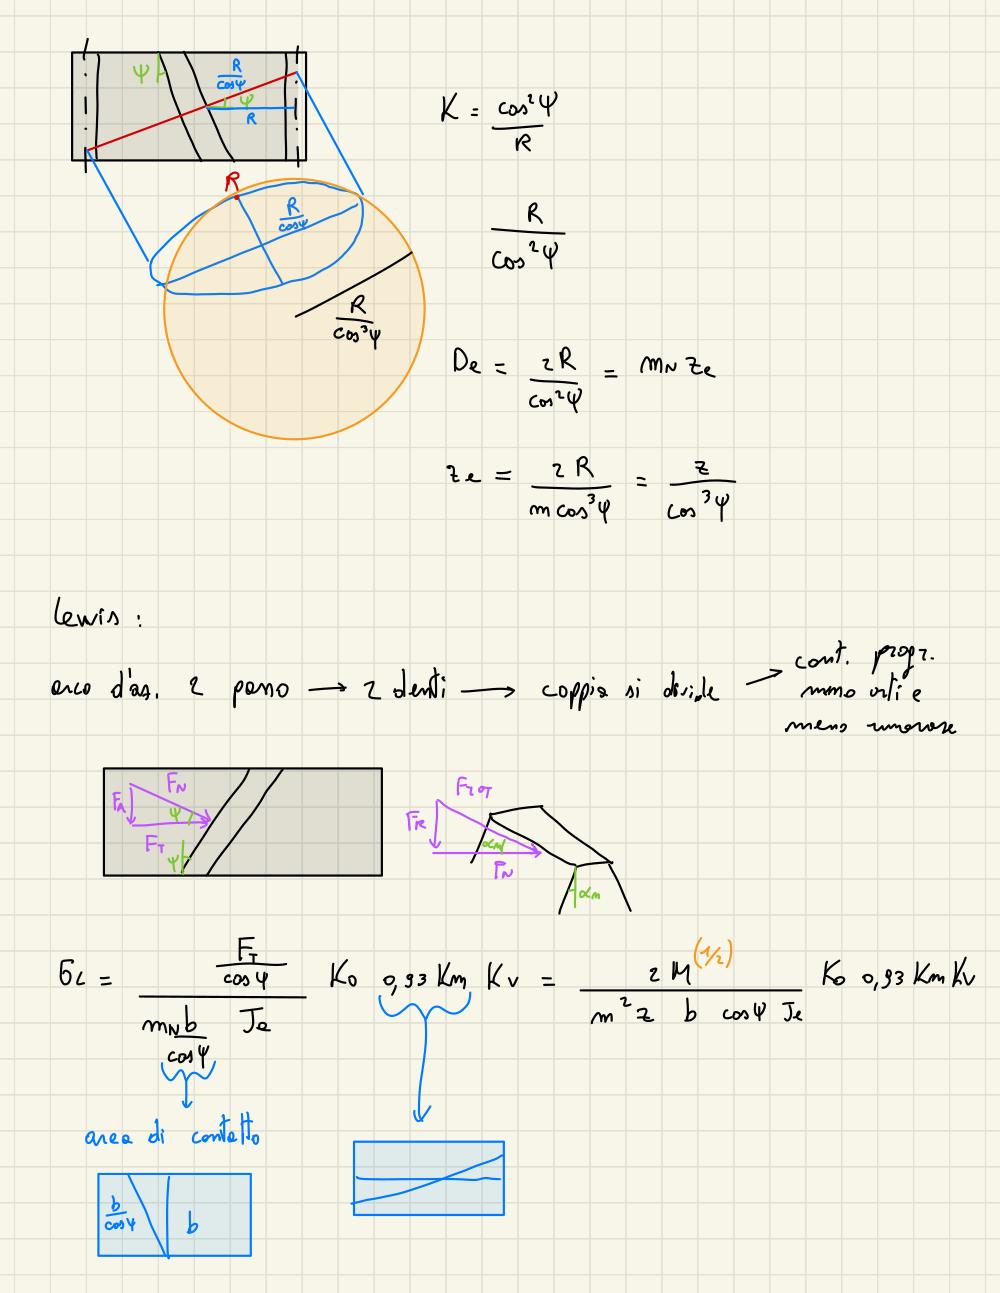 ψ R/cosψ ψ R
K = cos²ψ / R
R
R/cosψ
R / cos²ψ
R / cos³ψ
De = 2R / cos²ψ = mN ze
ze = 2R / m cos³ψ = z / cos³ψ
Lewis :
arco d'az. 2 passo → 2 denti → coppia si divide → cont. progr.
meno urti e
meno rumorose
FN FA ψ FT ψ
FTOT FR αm FN αm
σL = (FT / cosψ) / (mN b/cosψ Je) Ko 0,93 Km Kv = 2 M (1/2) / m² z b cosψ Je Ko 0,93 Km Kv
area di contatto
b/cosψ b